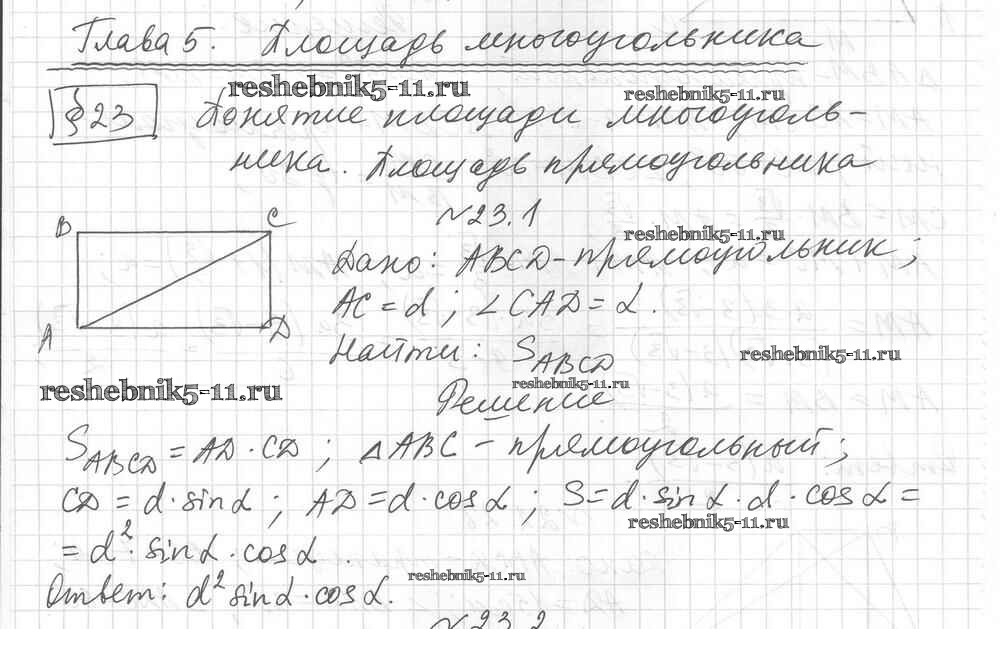 Глава 5. Площадь многоугольника
reshebnik5-11.ru
reshebnik5-11.ru
§ 23 Понятие площади многоуголь-
ника. Площадь прямоугольника
№23.1
reshebnik5-11.ru
B C
Дано: ABCD-прямоугольник;
AC = d; ∠CAD = α.
A D
Найти: S_ABCD
reshebnik5-11.ru
reshebnik5-11.ru
reshebnik5-11.ru
Решение
S_ABCD = AD · CD; △ABC - прямоугольный;
CD = d · sin α; AD = d · cos α; S = d · sin α · d · cos α =
reshebnik5-11.ru
= d² · sin α · cos α.
reshebnik5-11.ru
Ответ: d² sin α · cos α.
№23.2